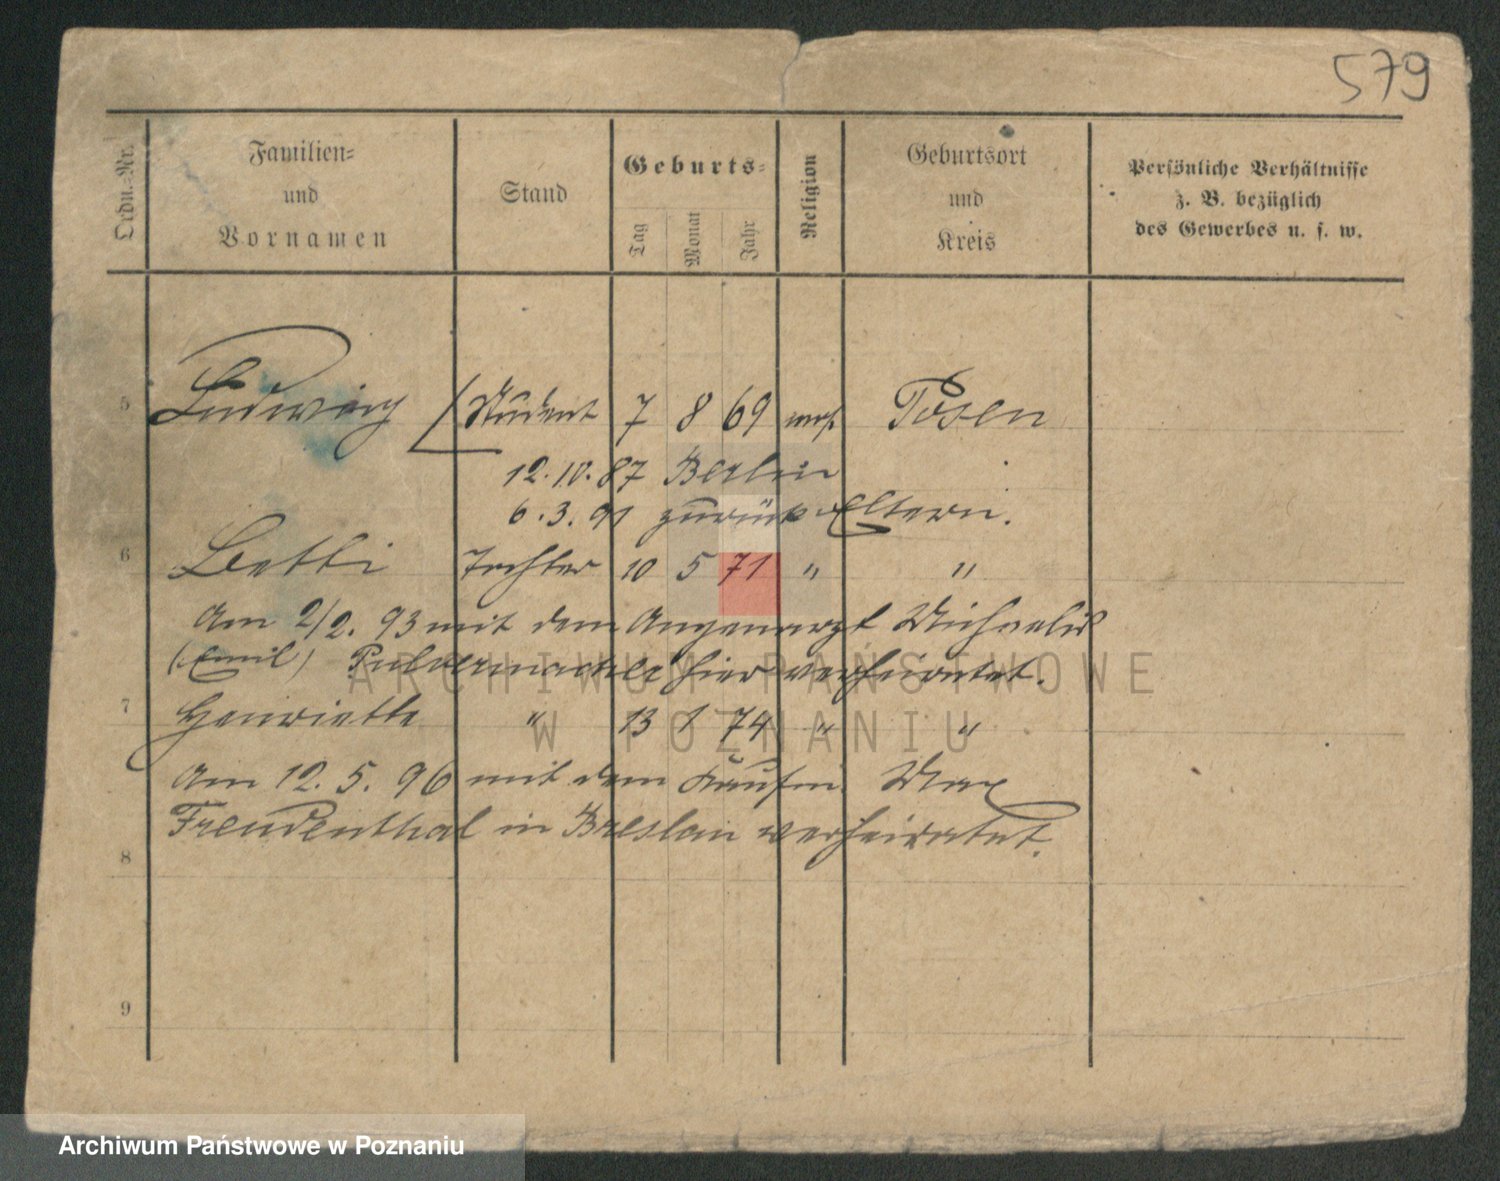 579
Ordn.-Nr. Familien- und Vornamen Stand Geburts- Tag Monat Jahr Religion Geburtsort und Kreis Persönliche Verhältnisse z. B. bezüglich des Gewerbes u. s. w.
5 Ludwig Student 7 8 69 mos. Posen
12.10.87 Berlin
6.3.91 zurück Eltern.
6 Betti Tochter 10 5 71 " "
Am 2/2. 93 mit dem Augenarzt Michaelis
(Emil) Pulvermacher hier verheiratet.
7 Henriette " 13 1 74 " "
Am 12. 5. 96 mit dem Kaufm. Max
Freudenthal in Breslau verheiratet.
8
9
ARCHIWUM PAŃSTWOWE
W POZNANIU
Archiwum Państwowe w Poznaniu